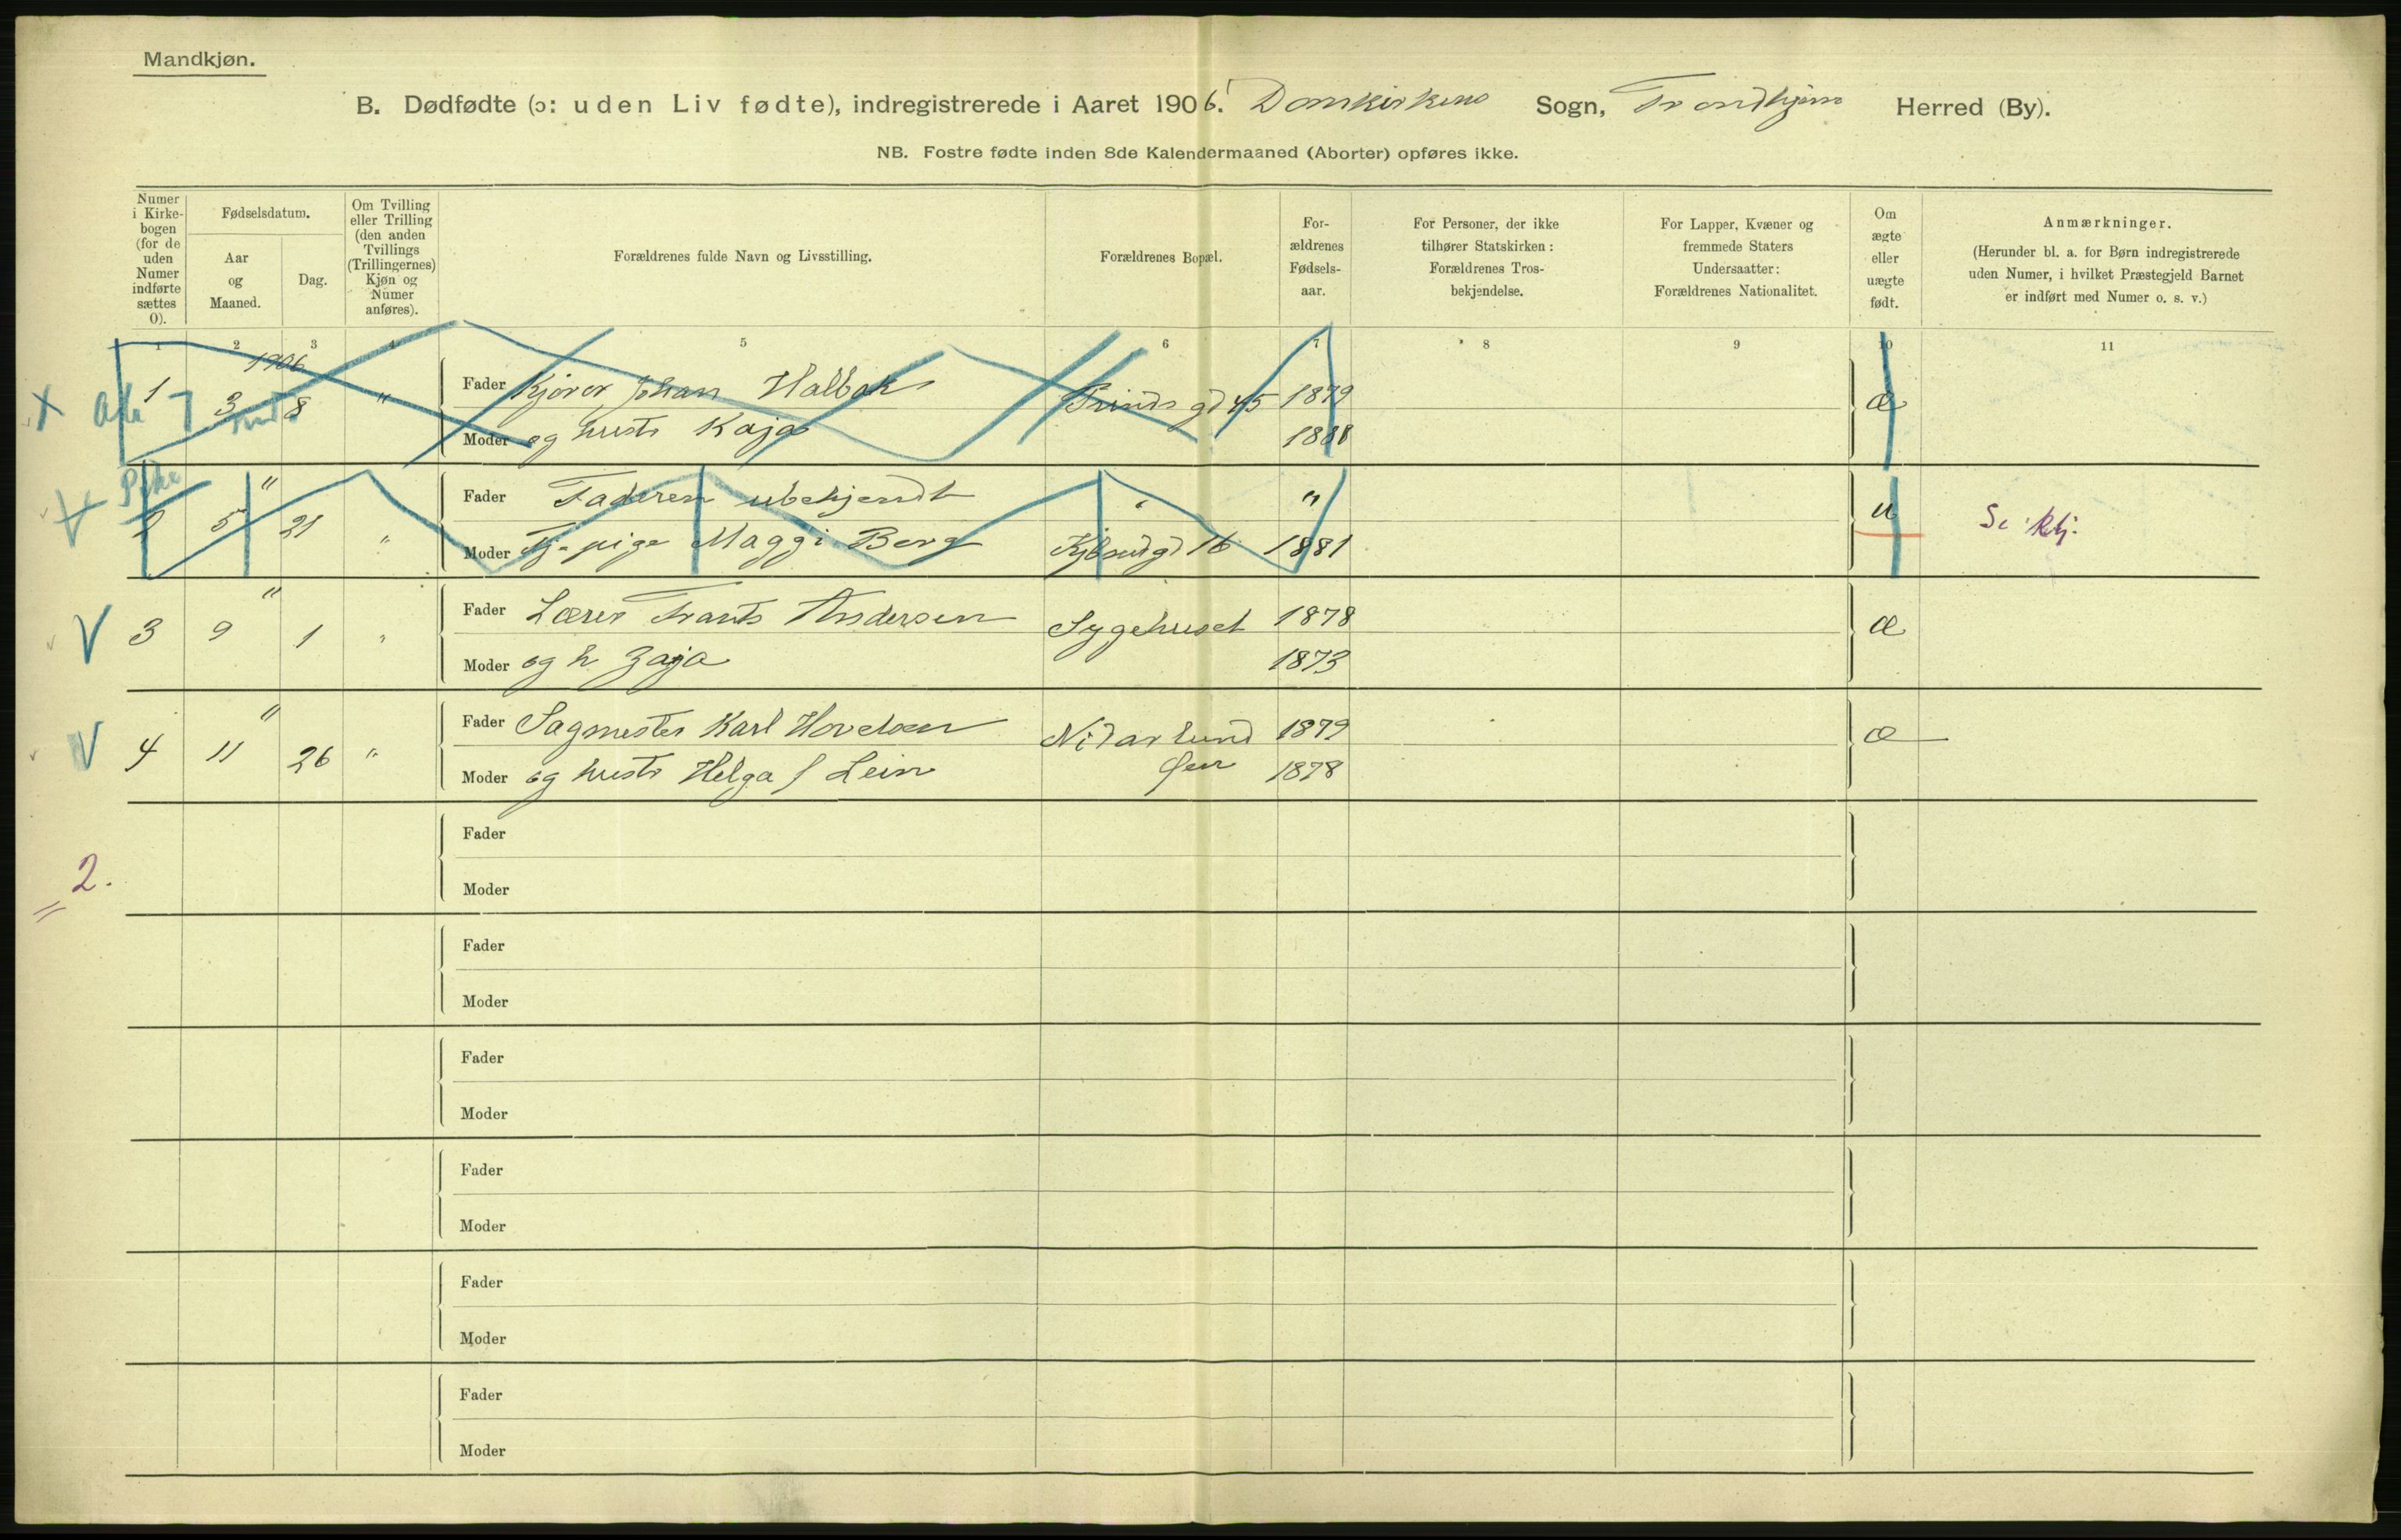 Mandkjøn.
B. Dødfødte (ɔ: uden Liv fødte), indregistrerede i Aaret 1906. Domkirkens Sogn, Trondhjem Herred (By).
NB. Fostre fødte inden 8de Kalendermaaned (Aborter) opføres ikke.
Numer i Kirkebogen (for de uden Numer indførte sættes 0).
Fødselsdatum.
Aar og Maaned.
Dag.
Om Tvilling eller Trilling (den anden Tvillings (Trillingernes) Kjøn og Numer anføres).
Forældrenes fulde Navn og Livsstilling.
Forældrenes Bopæl.
For-ældrenes Fødsels-aar.
For Personer, der ikke tilhører Statskirken: Forældrenes Tros-bekjendelse.
For Lapper, Kvæner og fremmede Staters Undersaatter: Forældrenes Nationalitet.
Om ægte eller uægte født.
Anmærkninger.
(Herunder bl. a. for Børn indregistrerede uden Numer, i hvilket Præstegjeld Barnet er indført med Numer o. s. v.)
1 2 3 4 5 6 7 8 9 10 11
1906
1 3 8 " Fader Kjører Johan Halbak Prinds gd 45 1879 æ
Moder og hustr Kaja 1888
" Fader Faderen ubekjendt " "
2 5 21 " Moder Tj. pige Maggi Berg 16 1881 u
" Fader Lærer Frants Andersen Sygehuset 1878
3 9 1 " Moder og h Zaja 1873 æ
" Fader Sagmester Karl Hovdean Nidarlund 1879
4 11 26 " Moder og hustr Helga f Lein 1878 æ
Fader
2.
Moder
Fader
Moder
Fader
Moder
Fader
Moder
Fader
Moder
Fader
Moder